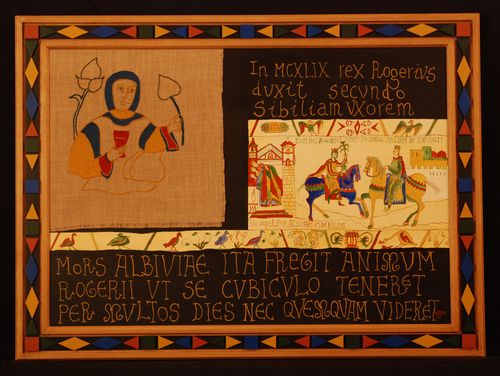 In MCXLIX rex Rogerius
duxit secundo
Sibiliam Uxorem
MORS ALBIVIAE ITA FREGIT ANIMUM
ROGERII UT SE CUBICULO TENERET
PER MULTOS DIES NEC QUEMQUAM VIDERET